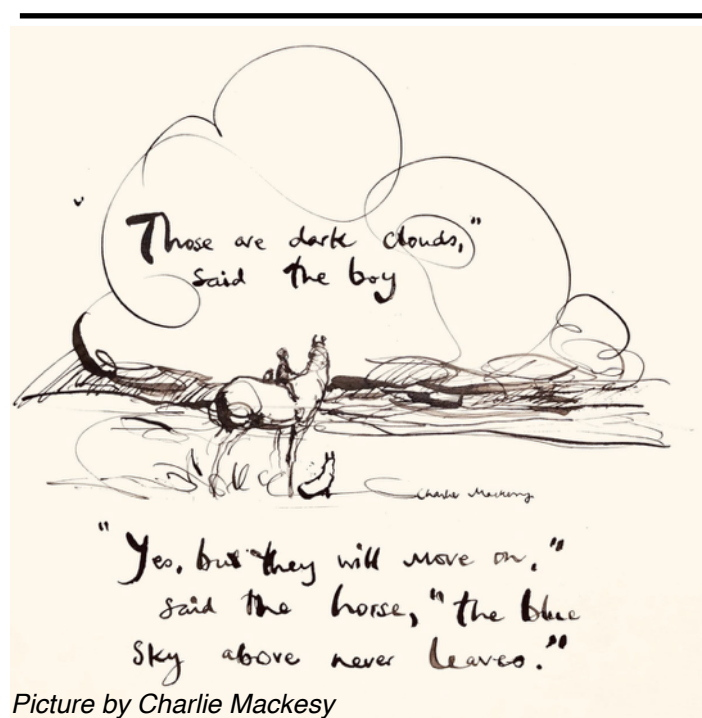 "Those are dark clouds,"
said the boy
Charlie Mackesy
"Yes, but they will move on,"
said the horse, "the blue
sky above never leaves."
Picture by Charlie Mackesy